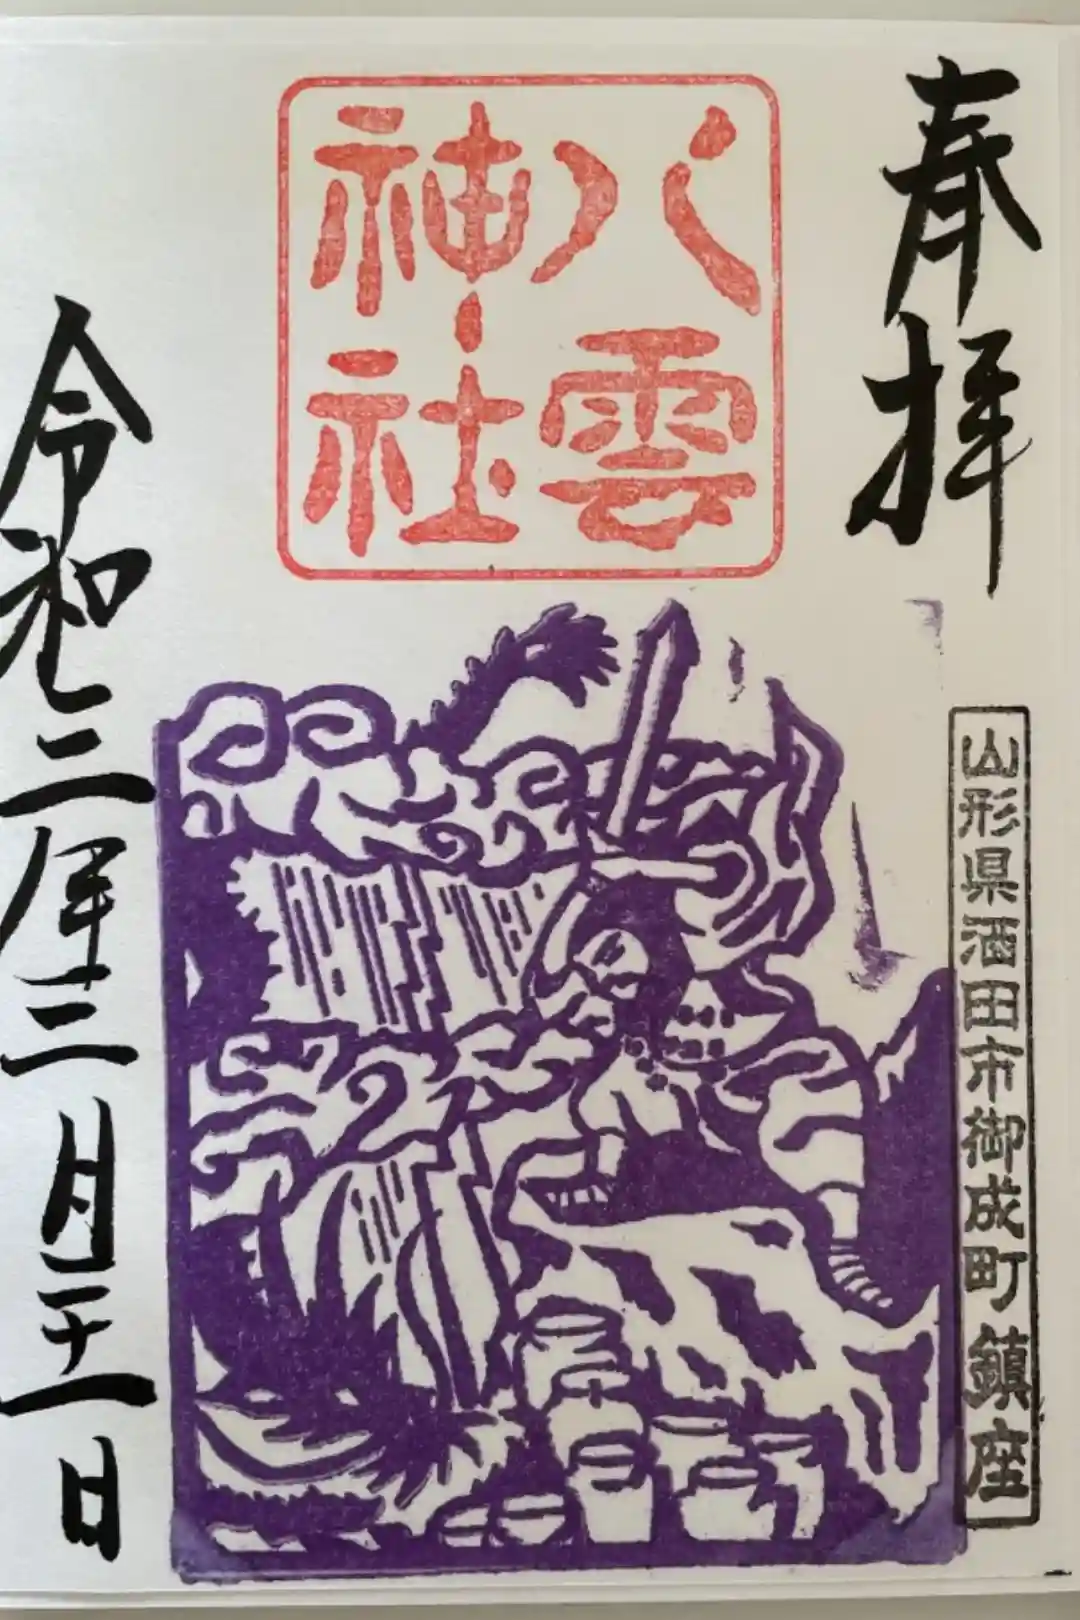 奉拝
八雲
神社
山形県酒田市御成町鎮座
令和二年二月二十一日